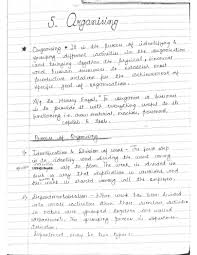 5. Organising
* Organising • It is the process of identifying &
grouping different activities in the organisation
and bringing together the physical, financial
and human resources to establish most
productive relation for the achievement of
specific goal of organisation.
A/q to Henry Fayol, "To organise a business
is to provide it with everything useful to its
functioning i.e. raw material, machine, personnel,
capital & tool.
Process of Organising
1) Identification & Division of work - The first step
is to identify and dividing the work
The work is divided in
such a way that duplication is avoided and
the work is shared among all the employees.
2) Departmentalisation - Once work has been divided
into small activities then those similar activities
in nature are grouped together and called
department. The grouping process is
Department may be two types: